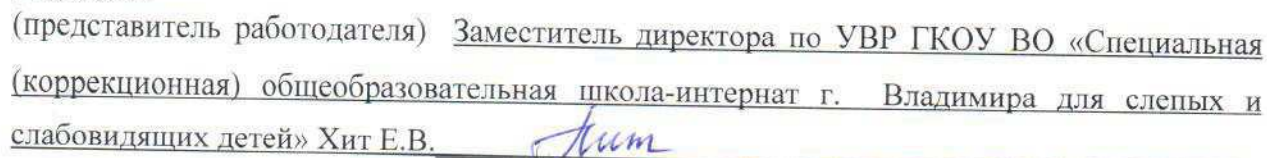 (представитель работодателя) Заместитель директора по УВР ГКОУ ВО «Специальная
(коррекционная) общеобразовательная школа-интернат г. Владимира для слепых и
слабовидящих детей» Хит Е.В.